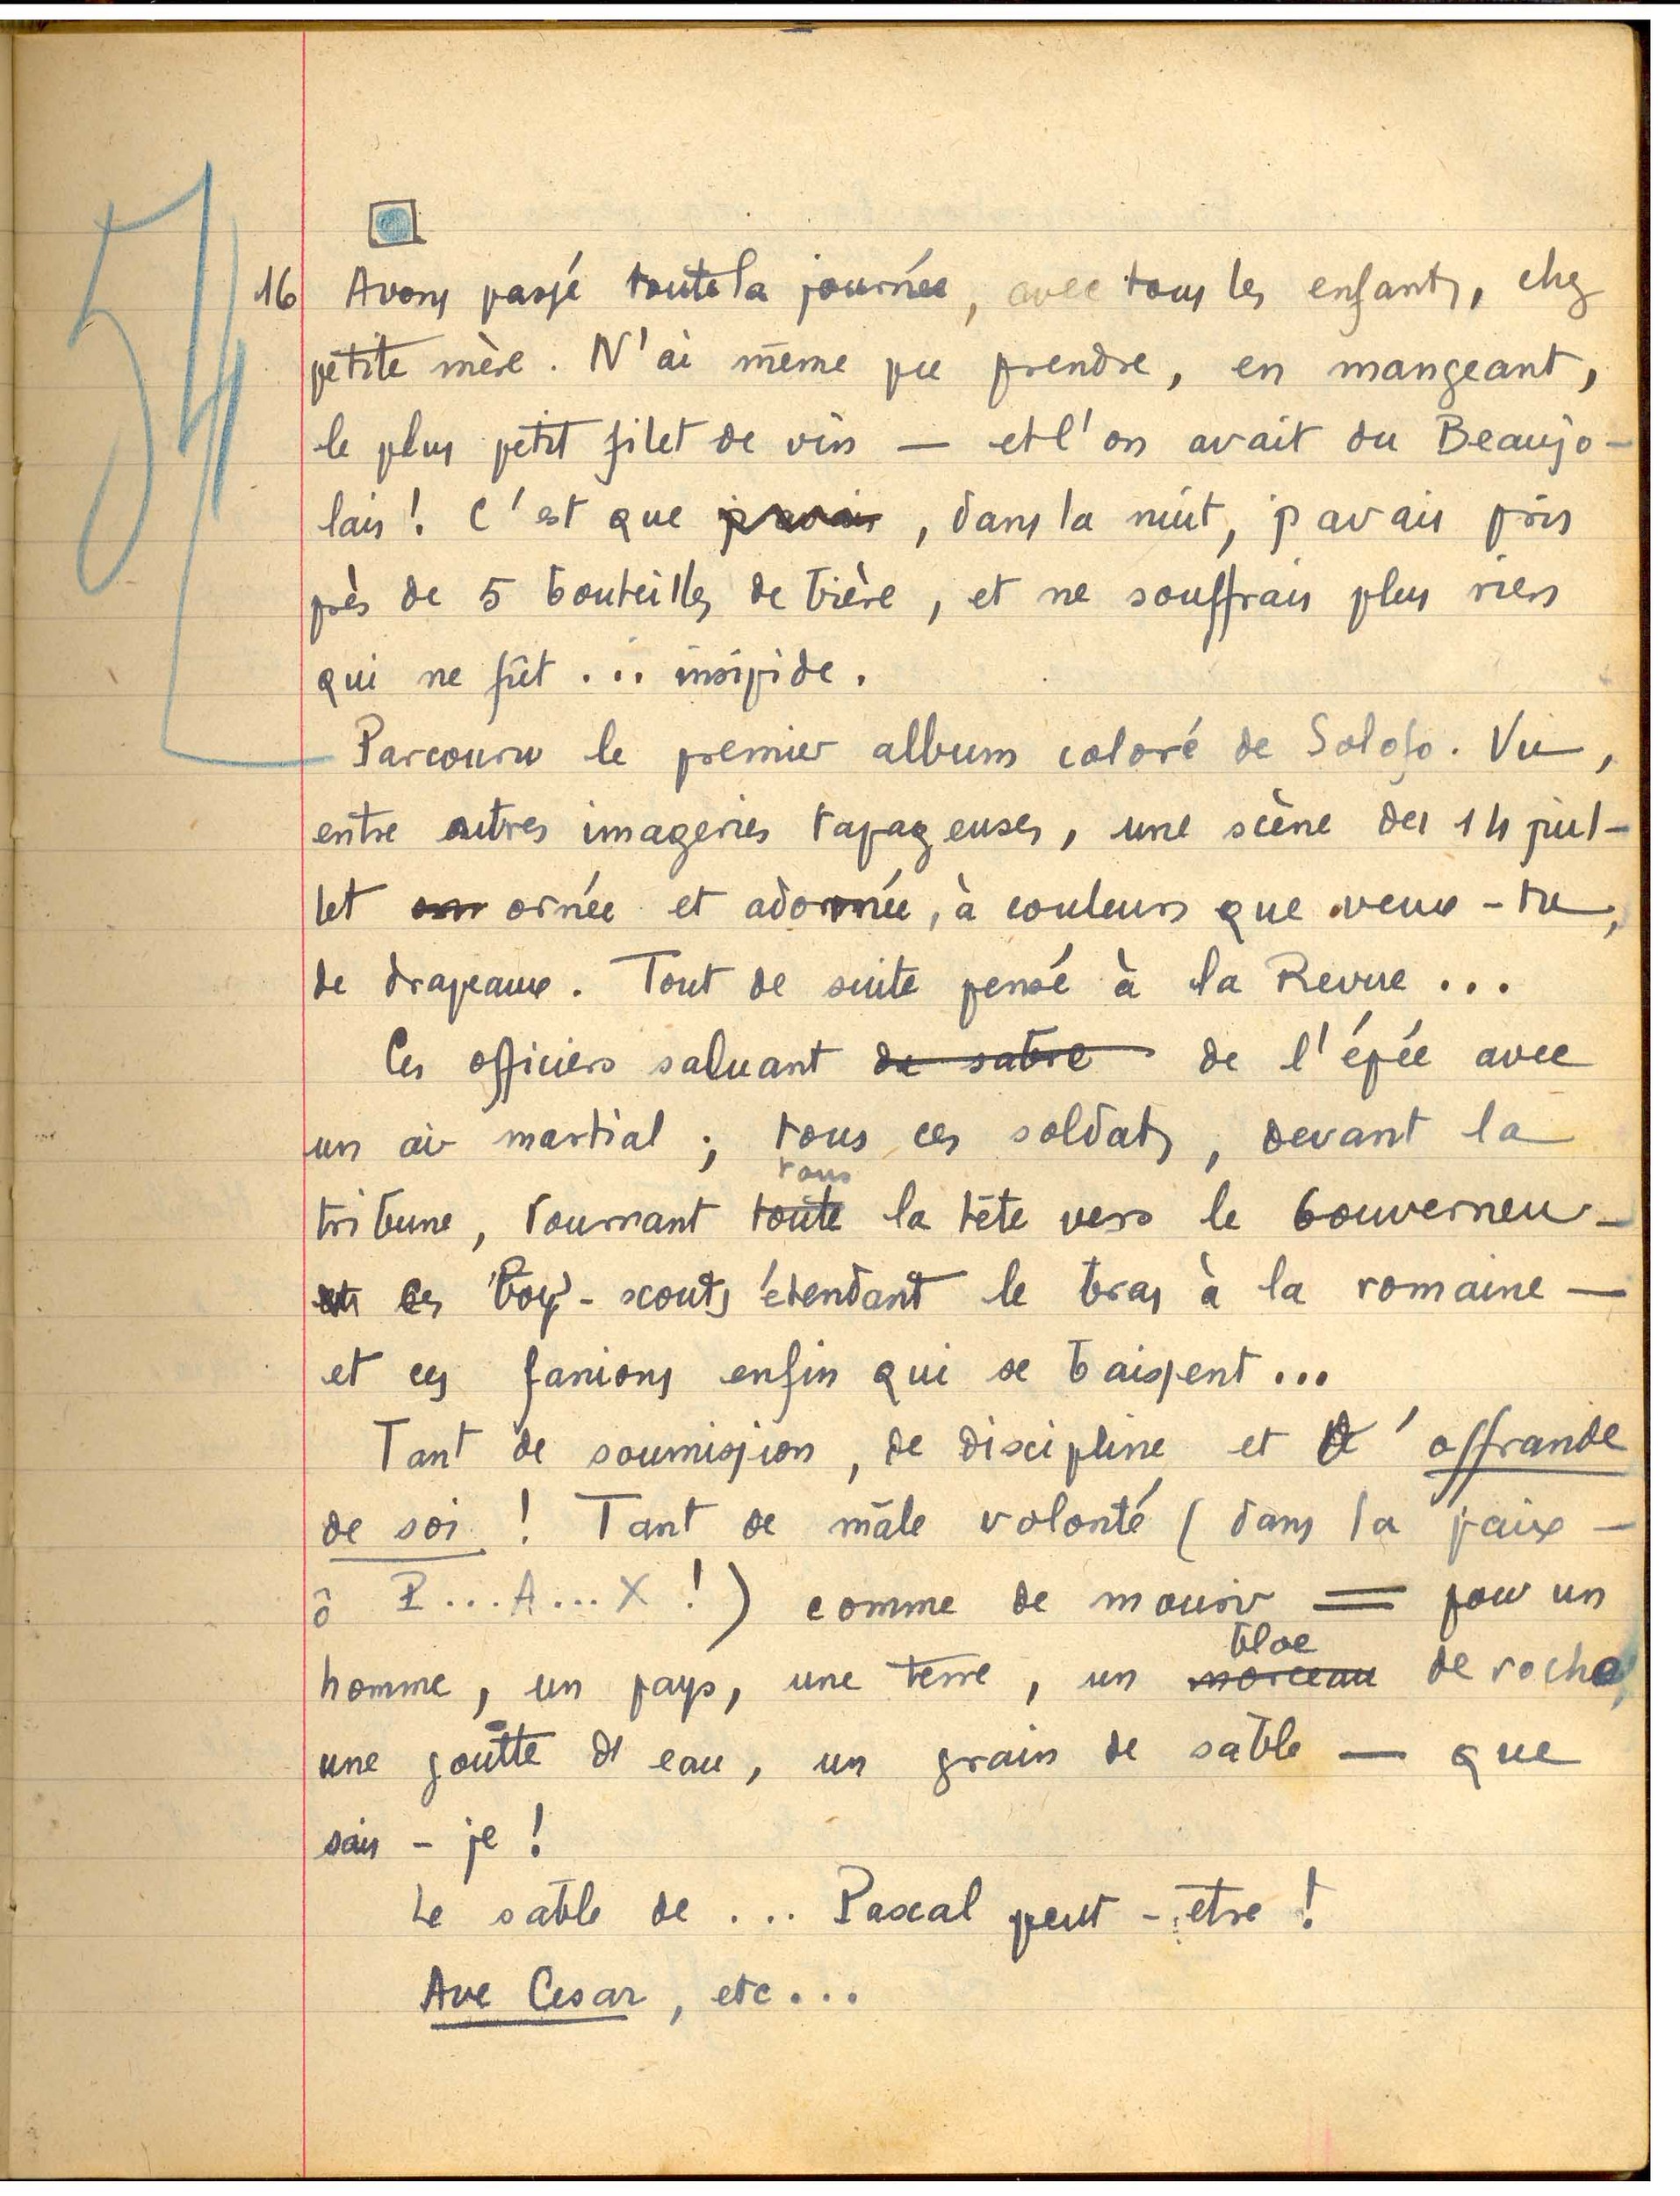 54
16 Avons passé toute la journée, avec tous les enfants, chez
petite mère. N'ai même pu prendre, en mangeant,
le plus petit filet de vin — et l'on avait du Beaujo-
lais ! C'est que j'avais, dans la nuit, j'avais pris
près de 5 bouteilles de bière, et ne souffrais plus rien
qui ne fût ... insipide.
Parcouru le premier album coloré de Solofo. Vu,
entre autres imageries tapageuses, une scène des 14 juil-
let ornée et adornée, à couleurs que veux-tu,
de drapeaux. Tout de suite pensé à la Revue ...
Ces officiers saluant du sabre de l'épée avec
un air martial ; tous ces soldats, devant la
tous
tribune, tournant toute la tête vers le Gouverneur -
et ces boy-scouts étendant le bras à la romaine —
et ces fanions enfin qui se baissent ...
Tant de soumission, de discipline et d'offrande
de soi ! Tant de mâle volonté (dans la paix —
ô P...A...X !) comme de mourir = pour un
bloc
homme, un pays, une terre, un morceau de roche,
une goutte d'eau, un grain de sable — que
sais-je !
Le sable de ... Pascal peut-être !
Ave Cesar, etc ...